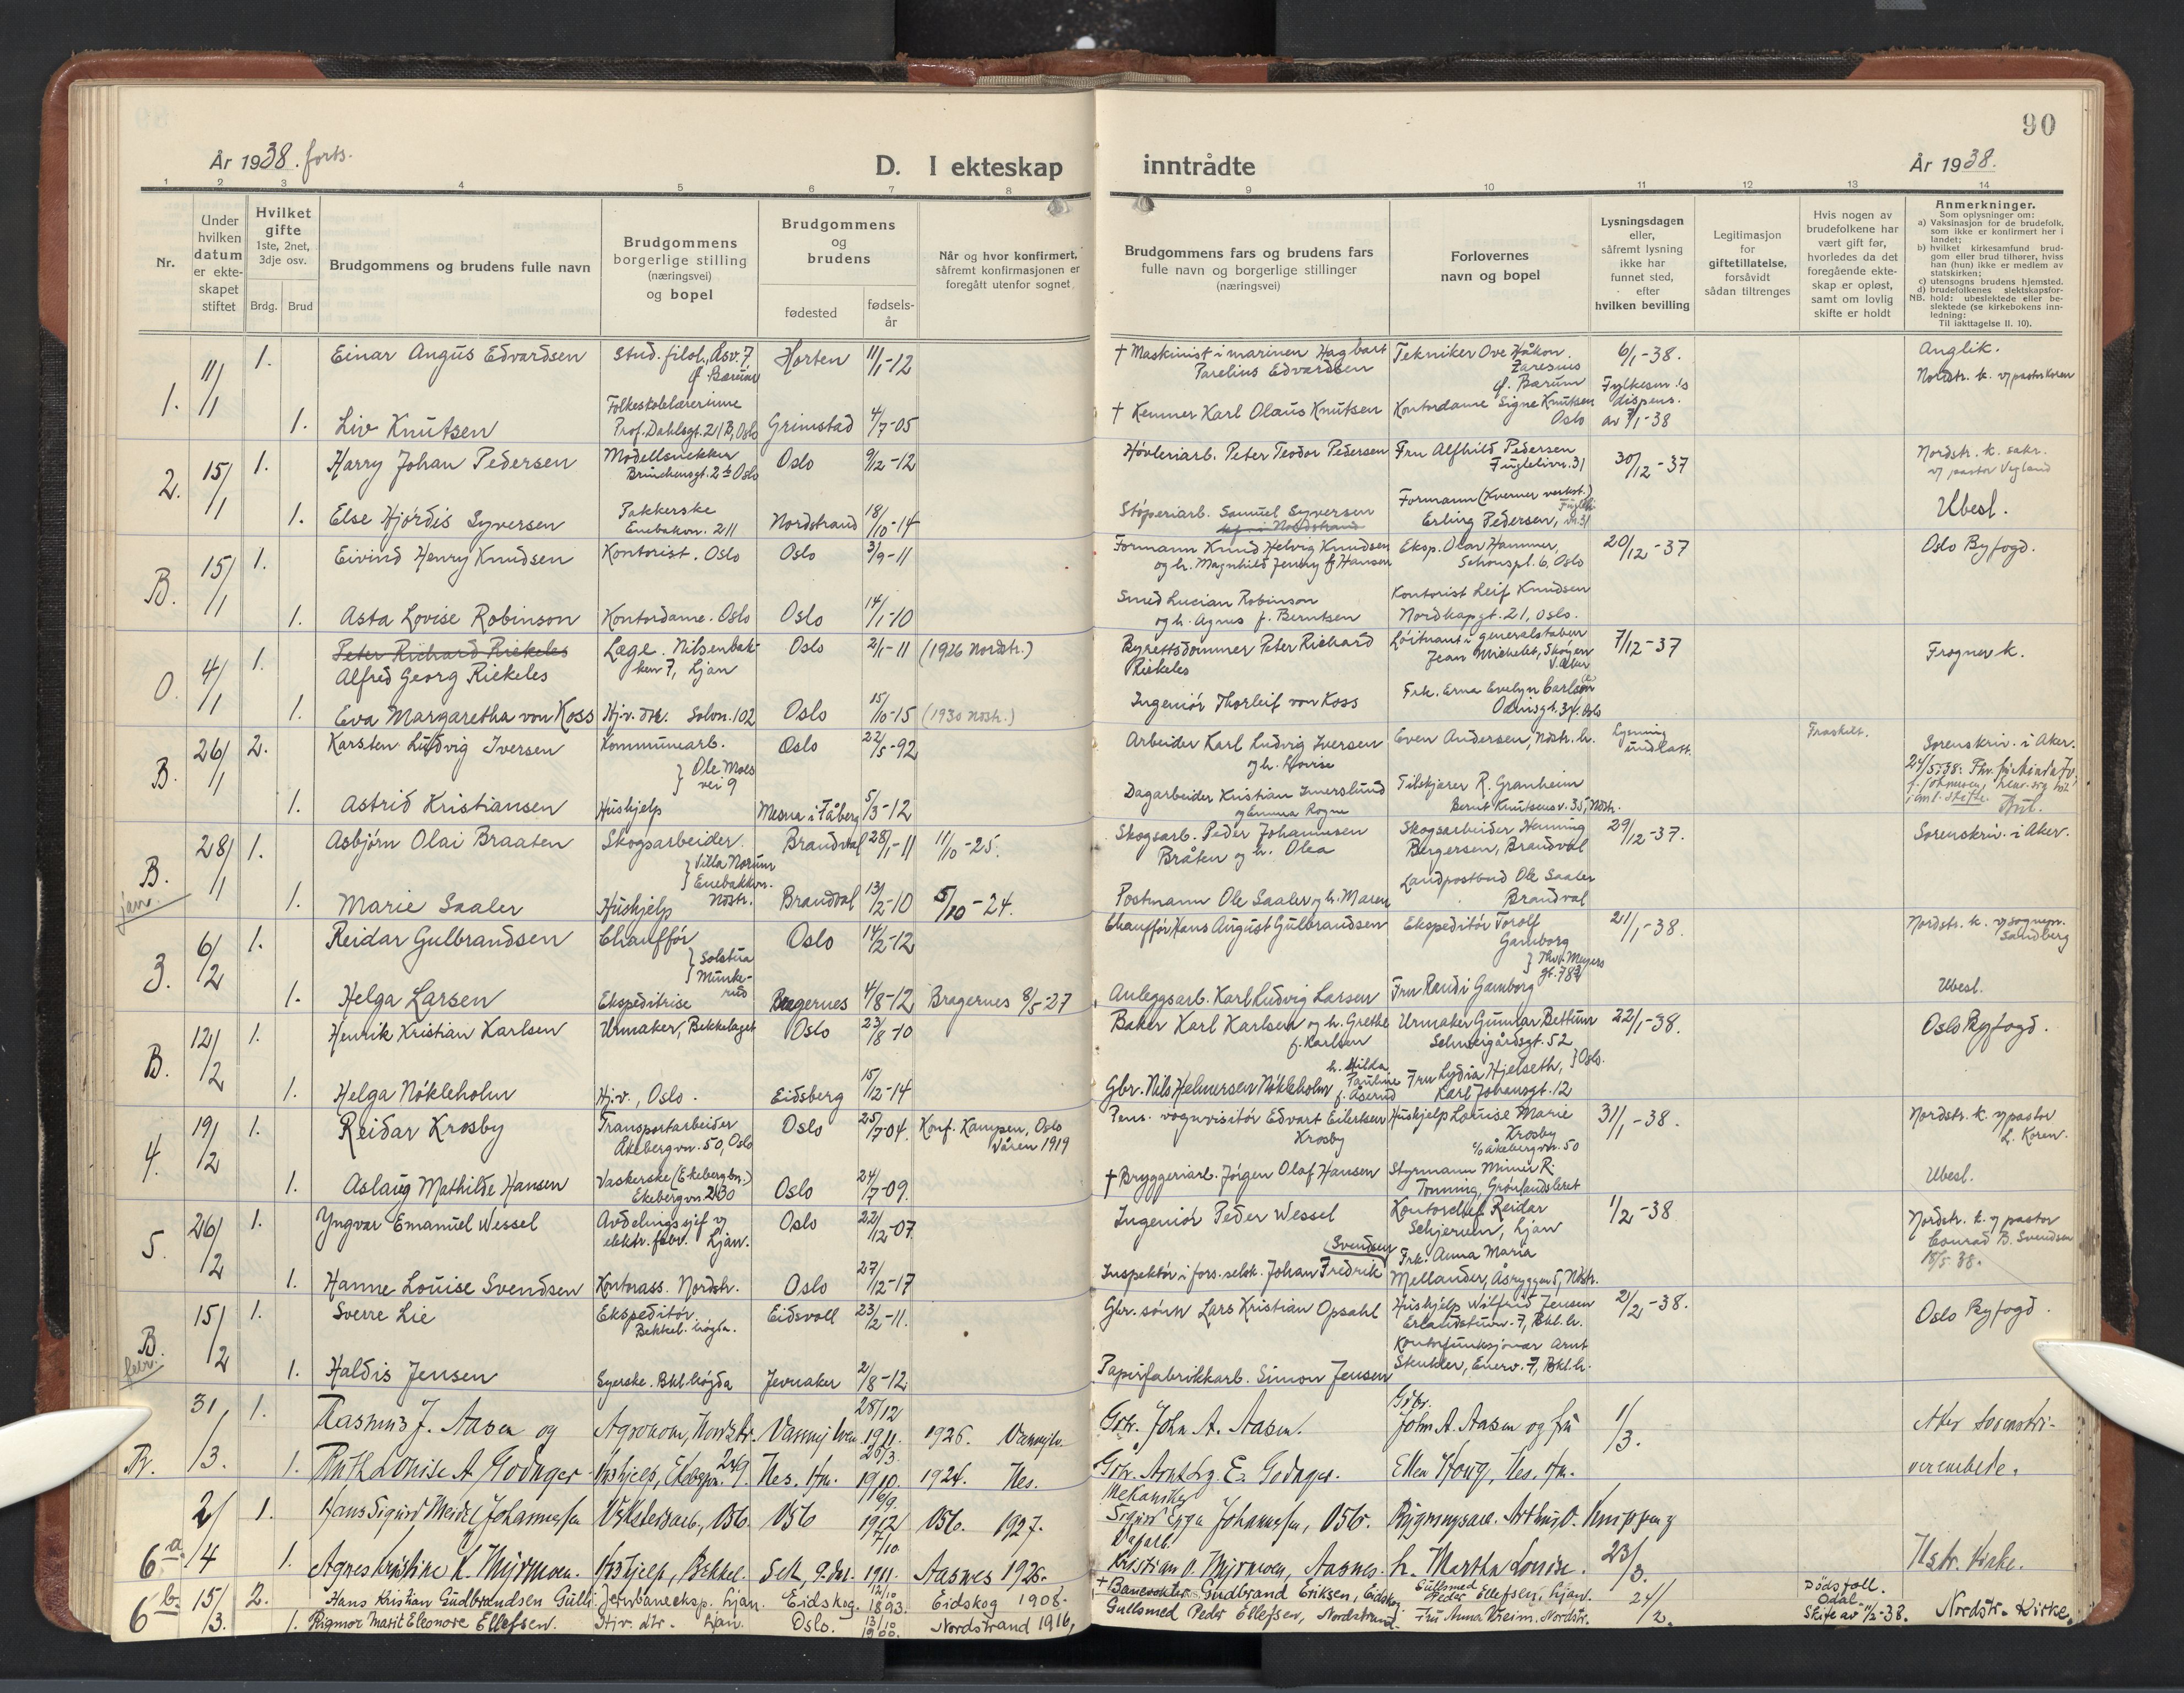 90
År 1938. forts.
D. I ekteskap
inntrådte
År 1938.
1 2 3 4 5 6 7 8 9 10 11 12 13 14
Nr.
Under hvilken datum er ekteskapet stiftet
Hvilket gifte 1ste, 2net, 3dje osv.
Brdg. Brud
Brudgommens og brudens fulle navn
Brudgommens borgerlige stilling (næringsvei) og bopel
Brudgommens og brudens
fødested
fødsels-år
Når og hvor konfirmert, såfremt konfirmasjonen er foregått utenfor sognet
Brudgommens fars og brudens fars fulle navn og borgerlige stillinger (næringsvei)
Forlovernes navn og bopel
Lysningsdagen eller, såfremt lysning ikke har funnet sted, efter hvilken bevilling
Legitimasjon for giftetillatelse, forsåvidt sådan tiltrenges
Hvis nogen av brudefolkene har vært gift før, hvorledes da det foregående ekteskap er opløst, samt om lovlig skifte er holdt
Anmerkninger.
Som oplysninger om:
a) Vaksinasjon for de brudefolk, som ikke er konfirmert her i landet;
b) hvilket kirkesamfund brudgom eller brud tilhører, hviss han (hun) ikke er medlem av statskirken;
c) utensogns brudens hjemsted.
d) brudefolkenes slektskapsforhold: ubeslektede eller beslektede (se kirkebokens innledning:
NB. Til iakttagelse II. 10).
1. 11/1 1. Einar Angus Edvardsen Stud. filol., Åsv. 7, Ø. Bærum Horten 11/1-12 † Maskinist i marinen Hagbart Parelius Edvardsen Tekniker Ove Håkon Ø. Bærum 6/1-38. Anglik. Nordstr. k. v/ pastor Koren
1. Liv Knutsen Folkeskolelærerinne Prof. Dahlsgt. 21B, Oslo Grimstad 4/7-05 † Kemner Karl Olaus Knutsen Kontordame Signe Knutsen Oslo Fylkesm.'s dispens. av 7/1-38
2. 15/1 1. Harry Johan Pedersen Modellsnekker Oslo Oslo 9/12-12 Høvleriarb. Peter Teodor Pedersen Fru Alfhild Pedersen Fuglelivn. 31 30/12-37 Nordstr. k. sakr. v/ pastor Vegland
1. Else Hjørdis Syversen Pakkerske Enebakvn. 211 Nordstrand 18/10-14 Støperiarb. Samuel Syversen Formann (Kværner verkst.) Erling Pedersen, Ubesl.
B. 15/1 1. Eivind Henry Knudsen Kontorist. Oslo Oslo 3/9-11 Formann Knud Helvig Knudsen og h. Magnhild Jenny f. Hansen Eksp. Olav Hammer, Schouspl. 6, Oslo 20/12-37 Oslo Byfogd.
1. Asta Lovise Robinson Kontordame. Oslo Oslo 14/1-10 Smed Lucian Robinson og h. Agnes f. Berntsen Kontorist Leif Knudsen Nordkapgt. 21, Oslo.
O. 4/1 1. Peter Richard Riekeles
Alfred Georg Riekeles Læge. Nilsenbakken 7, Ljan Oslo 2/1-11 (1926 Nordstr.) Byrettsdommer Peter Richard Riekeles Løitnant i generalstaben Jean Michelet, Skøyen V. Aker 7/12-37 Frogner k.
1. Eva Margaretha von Koss Hj.v. dtr. Solvn. 102 Oslo 15/10-15 (1930 Nostr.) Ingeniør Thorleif von Koss Frk. Erna Evelyn Carlsen Odinsgt. 34. Oslo
B. 26/1 2. Karsten Ludvig Iversen Kommunearb. Oslo 22/5-92 Arbeider Karl Ludvig Iversen og h. Lovise Even Andersen, Nostr. h. Lysning undlatt. Fraskilt. Sorenskriv. i Aker.
1. Astrid Kristiansen Hushjelp } Ole Moes vei 9 Mesna i Fåberg 5/3-12 Dagarbeider Kristian Imerslund og Emma Rogne Tilskjærer R. Granheim Bernt Knutsens v. 35, Nostr.
B. 28/1 1. Asbjørn Olai Braaten Skogsarbeider. Brandval 28/1-11 11/10-25. Skogsarb. Peder Johannesen Bråten og h. Olea Skogsarbeider Henning Bergersen, Brandval 29/12-37. Sorenskriv. i Aker.
jan. 1. Marie Saaler Hushjelp } Villa Norum Enebakkvn. Nostr. Brandval 13/2-10 5/10-24. Postmann Ole Saaler og h. Maren Landpostbud Ole Saaler Brandval
3. 6/2 1. Reidar Gulbrandsen Chauffør Oslo 14/2-12 Chauffør Hans August Gulbrandsen Ekspeditør Torolf Gamborg 21/1-38. Nordstr. k. v/ sognepr. Sandberg
1. Helga Larsen Ekspeditrise } Solstua Munkerud Bragernes 4/8-12 Bragernes 8/5-27 Anleggsarb. Karl Ludvig Larsen Fru Randi Gamborg } Thv. Meyers gt. 78 Ubesl.
B. 12/2 1. Henrik Kristian Karlsen Urmaker, Bekkelaget Oslo 23/8-10 Baker Karl Karlsen og h. Grethe f. Karlsen Urmaker Gunnar Bettum Schweigårdsgt. 52 22/1-38. Oslo Byfogd.
1. Helga Nökleholm Hj.v., Oslo. Eidsberg 15/12-14 Gbr. Nils Helmersen Nökleholm h. Hilda Pauline f. Åserud Fru Lydia Hjelseth, Karl Johansgt. 12 } Oslo.
4. 19/2 1. Reidar Krosby Transportarbeider Åkebergvn. 50, Oslo Oslo 25/7-04. Konf. Kampen, Oslo Våren 1919 Pens. vognvisitør Edvart Eilertsen Krosby Hushjelp Louise Marie Krosby c/o Åkebergvn. 50 31/1-38. Nordstr. k. v/ pastor L. Koren.
1. Aslaug Mathilde Hansen Vaskerske (Ekebergbn.) Ekebergvn. Oslo 24/7-09. † Bryggeriarb. Jørgen Olaf Hansen Styrmann R. Tonning, Grønlandsleret Ubesl.
5. 26/2 1. Yngvar Emanuel Wessel Avdelingssjef v/ elektr. fabr. Ljan. Oslo 22/12-07. Ingeniør Peder Wessel Kontorchef Reidar Schjerven, Ljan 1/2-38 Nordstr. k. v/ pastor Conrad B. Svendsen
1. Hanne Louise Svendsen Kontorass. Nordstr. Oslo 27/12-17 Inspektør i fors. selsk. Johan Fredrik Svendsen Frk. Anna Maria Mellander, Åsryggen 5, Nostr.
B. 15/2 1. Sverre Lie Ekspeditør Bekkel. høgda. Eidsvoll 23/2-11. Gbr. sønn Lars Kristian Opsahl Hushjelp Wilfrid Jensen 7, Bkl.h. 2/2-38. Oslo Byfogd.
febr. 1. Haldis Jensen Syerske. Bkl.høgda Jevnaker 2/8-12 Papirfabrikkarb. Simon Jensen Kontorfunksjonær Arnt Stenkler, Enerv. 7, Bkl.h.
B. 31/3. 1. Rasmus J. Aasen og Agronom, Nordstr. 28/12 1911. 1926. Gbr. John A. Aasen. Gbr. John A. Aasen og fru 1/3. Aker Sorenskriverembede.
1. Ruth Louise A. Godager Hushjelp, Ekebgvn. 249. Nes. Hm. 20/3. 1910. 1924. Nes. Gbr. E. Godager. Ellen Houg, Nes. Hm.
6 a 2/4 1. Hans Sigurd Meidel Johannessen Verkstedsarb., Oslo. Oslo 6/9. 1912 Oslo. 1927. Mekaniker Sigurd Johannessen, Oslo. Bygningsarb. Arthur O.
1. Agnes Kristine K. Myrmoen. Hushjelp, Bekkel. Sell, G.dal. 7/10 1911. Aasnes 1926. Dagarb. Kristian O. Myrmoen, Aasnes. h. Martha Louise. 23/3. Nstr. Kirke.
6 b. 15/3. 2. Hans Kristian Gudbrandsen Gulli. Jernbaneeksp. Ljan. Eidskog. 12/10 1893. Eidskog 1908. † Banevokter Gudbrand Eriksen, Eidskog. Gullsmed Peder Ellefsen, Ljan. 24/2. Dødsfall. Odal. Skifte av 11/2-38. Nordstr. Kirke.
1. Rigmor Marit Eleonore Ellefsen. Hjv. dtr. Ljan. Oslo. 13/10 1900. Nordstrand 1916. Gullsmed Peder Ellefsen, Nordstrand. Fru Anna Nordstr.